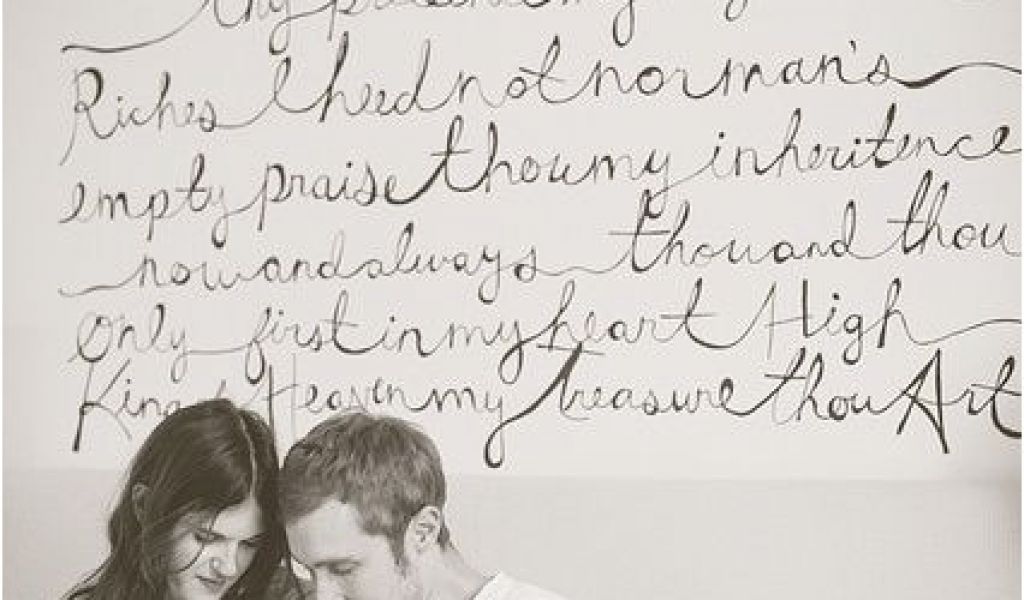 thy presence my
Riches I heed not nor man's
empty praise thou my inheritence
now and always thou and thou
Only first in my heart High
King Heaven my treasure thou Art